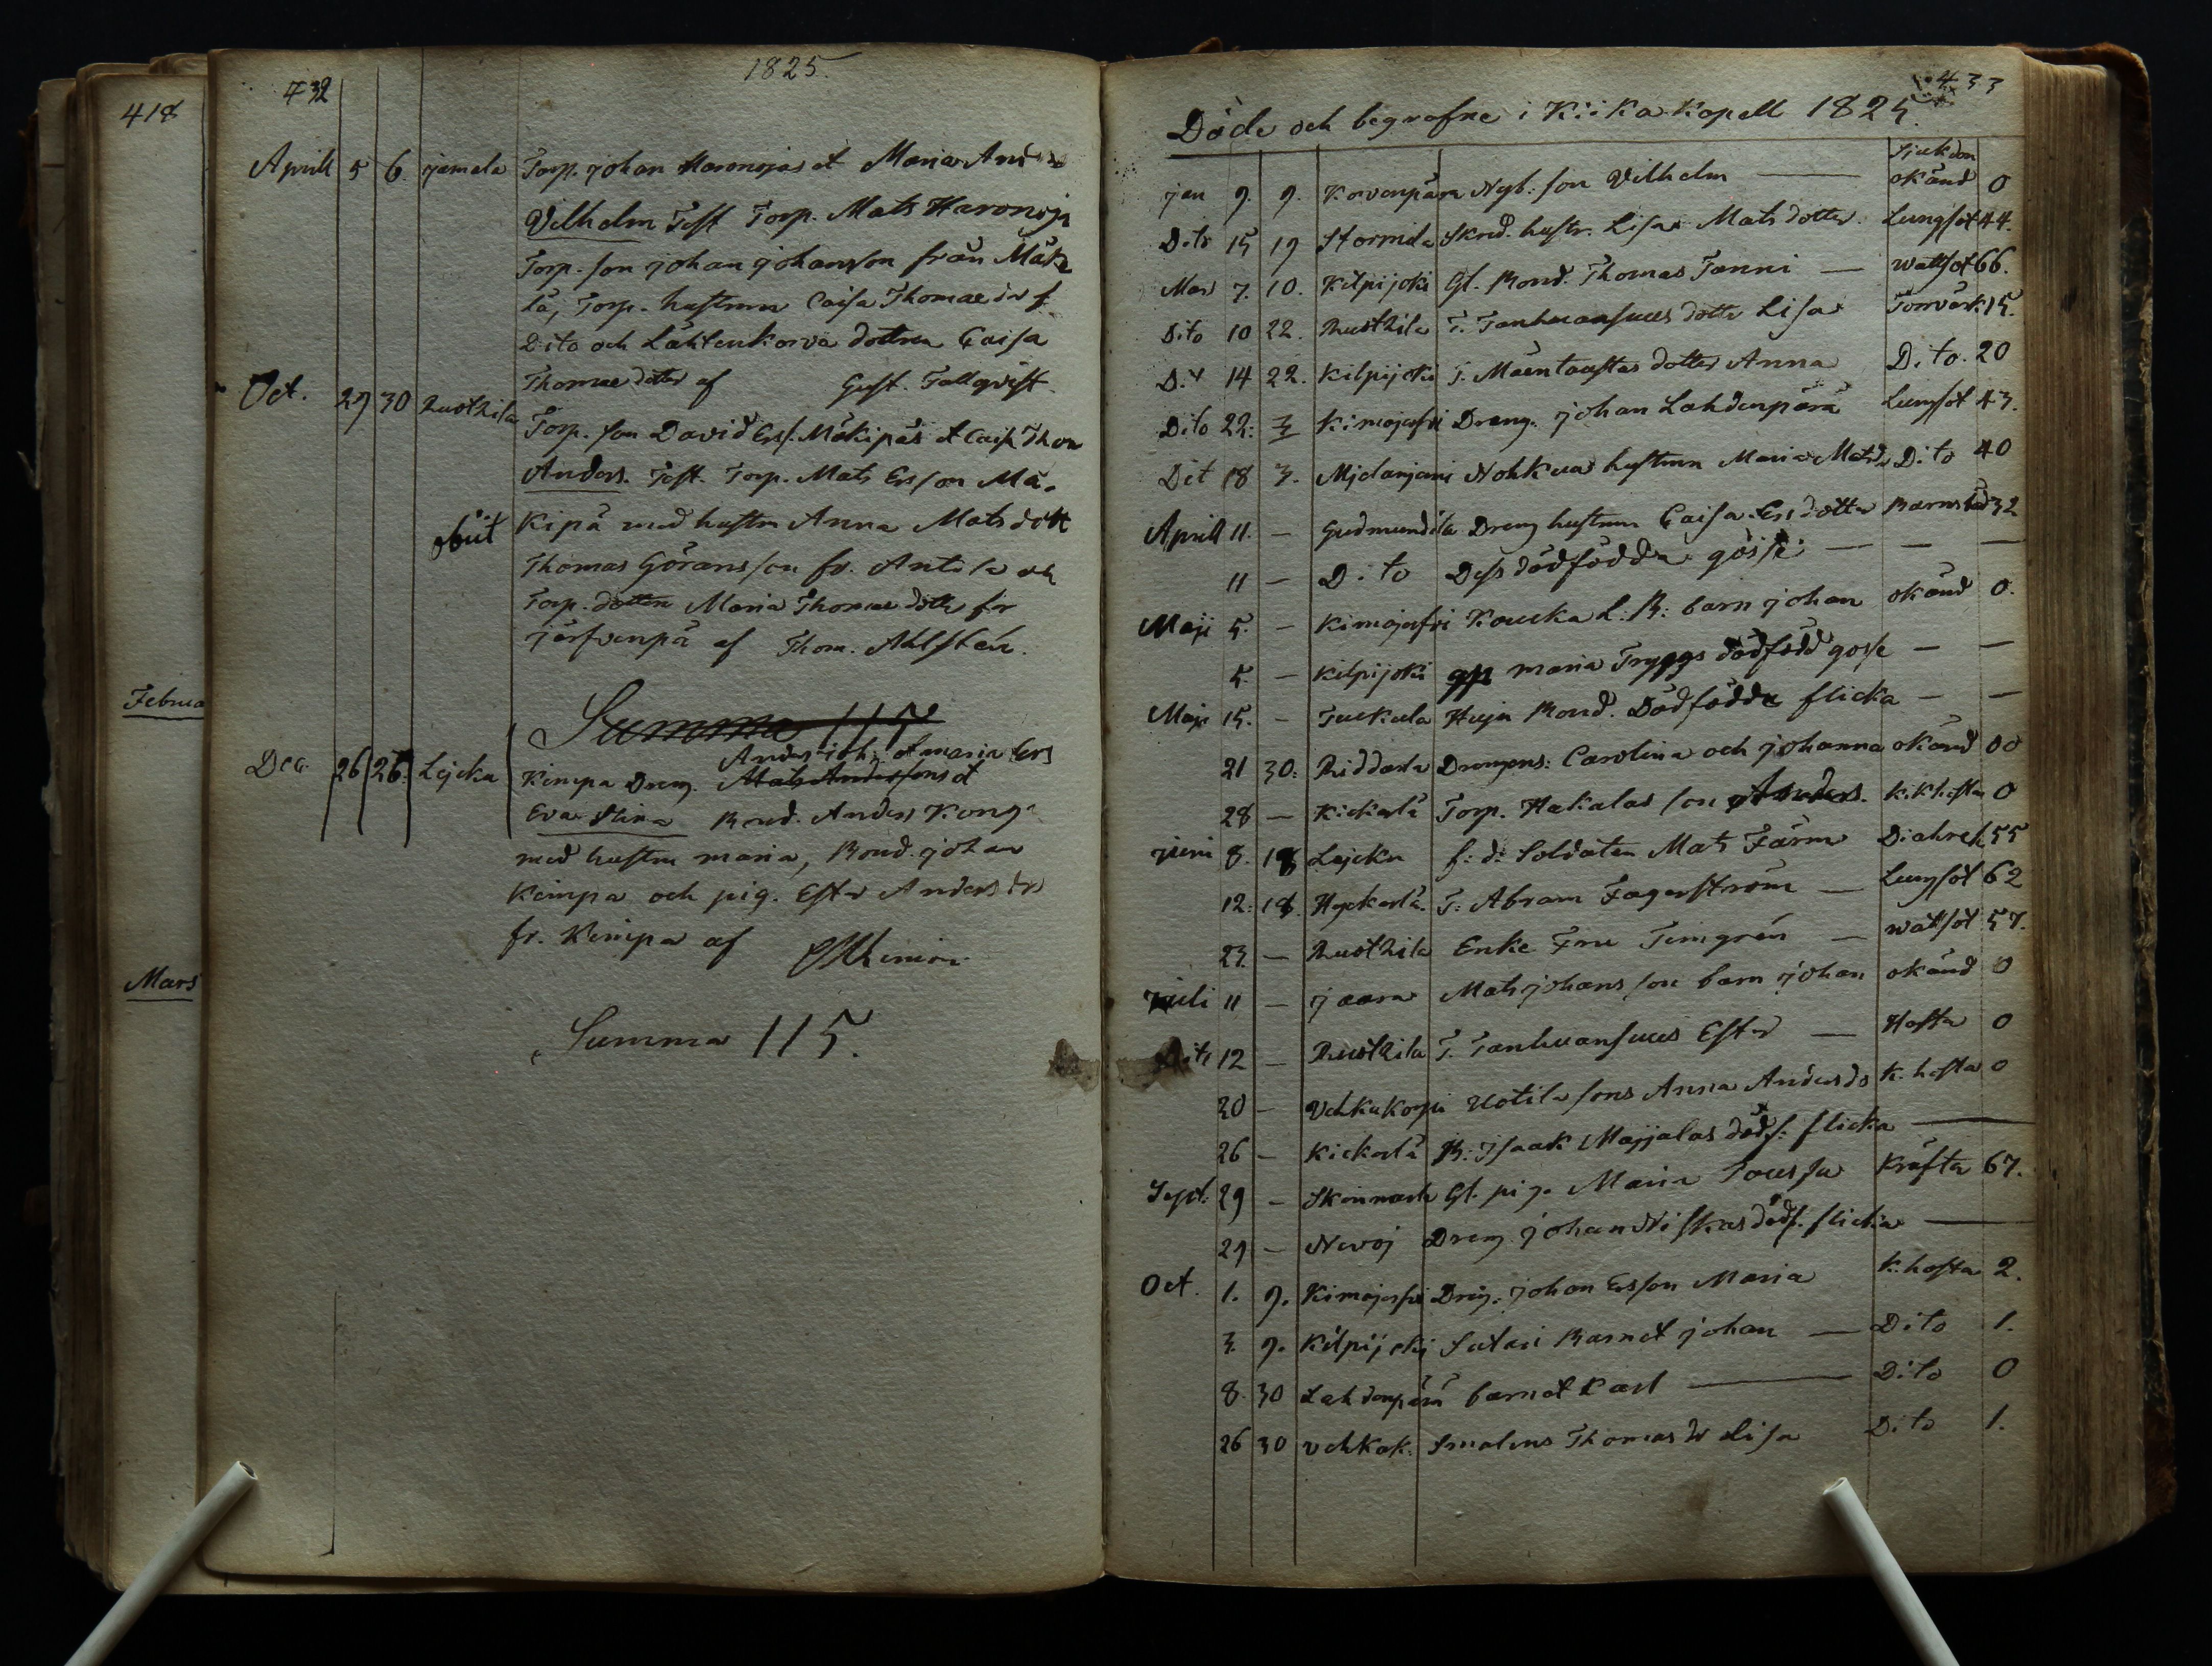 418
Februa
Mars
432
1825.
Aprill 5 6. jamala Torp. Johan Haronojas et Maria And
Vilhelm Test Torp. Mats Haronoja
Torp. son Johan Johansson från Mäke
lä, Torp. hustrun Caisa Thomae dr f.
Dito och Lähtenkorva dottren Caisa
Thomae dotter af Gust. Tallqvist
Oct. 29 30 Ruothila Torp. son David Ers. Mäkipäs et Caisa Thom
Anders. Test. Torp. Mats Ersson Mä-
obiit kipä med hustru Anna Matsdott
Thomas Göransson fr. Antila och
Torp. dottren Maria Thomae dotter fr
Järfvenpä af Thom. Ahlstén.
Summa 115
Anders Joh: et Maria Ers
Dec. 26 26. Lejcku Kimpa Dreng. Mats Anderssons et
Eva Stina Bond. Anders Kong
med hustru Maria, Bond. Johan
Kimpa och pig. Ester Anders dr
fr. Kimpa af
Summa 115.
433
Döde och begrafne i Kiika Kapell 1825.
Sjukdom
Jan 9. 9. Korvenpära Nyb: son Vilhelm — okänd 0
Dito 15 19 Stormila Skrd. hustr. Lisa Mats dotter Lungsot 44.
Mar 7. 10. Kilpijoki Gl. Bond. Thomas Tanni — Wattsot 66.
Dito 10 22. Ruothila T. Tanhuansuus dotter Lisa Torrvärk. 15.
D:o 14 22. Kilpijoki T. Mäentaustas dotter Anna Dito. 20
Dito 22: 3 Kimajerfvi Dreng. Johan Lahdenpärä Lungsot 43.
Dit 18 3. Mjelanjerri Nohkua hustrun Maria Matsdr Dito 40
Aprill 11. — Gudmundila Dreng hustrun Caisa Ersdotter Barnsbörd 32
11 — Dito Dess dödfödda gosse — — —
Maji 5. — Kimajerfvi Kouka L: B: barn Johan okänd 0.
5. — Kilpijoki Maria Tryggs dödfödd gosse — —
Maji 15. — Tuckula Huju Bond. Dödfödda flicka — —
21 30: Riddarla Drengens: Carolina och Johanna okänd 00
28 — Kickerlä Torp. Hakalas son Anders. Kikhosta 0
Juni 8. 18 Lejcku f: d: Soldaten Mats Färm Diahreh 55
12: 18. Heckerlä. T: Abram Fagerström — Lungsot 62
23. — Ruothila Enke Fru Timgrén — Wattsot 57.
Juli 11 — Jaara Mats Johansson barn Johan okänd 0
Dito 12 — Ruothila T. Tanhuansuus Ester — Hosta 0
20 — Vehkakorpi Uotila sons Anna Andersdr K. hosta 0
26 — Kickerlä B: Isaak Majjalas dödf: flicka —
Sept. 29 — Skinnarla Gl. pig. Maria Toussu Kräfta 67.
29 — Novoj Dreng Johan Niskas dödf. flicka —
Oct. 1. 9. Kimajerfvi Dreng. Johan Ersson Maria K. hosta 2.
3. 9. Kilpijoki Sutari Barnet Johan — Dito 1.
8. 30 Lahdenpärä barnet Karl — Dito 0
26 30 Vehkak. Smalens Thomas dr Lisa Dito 1.